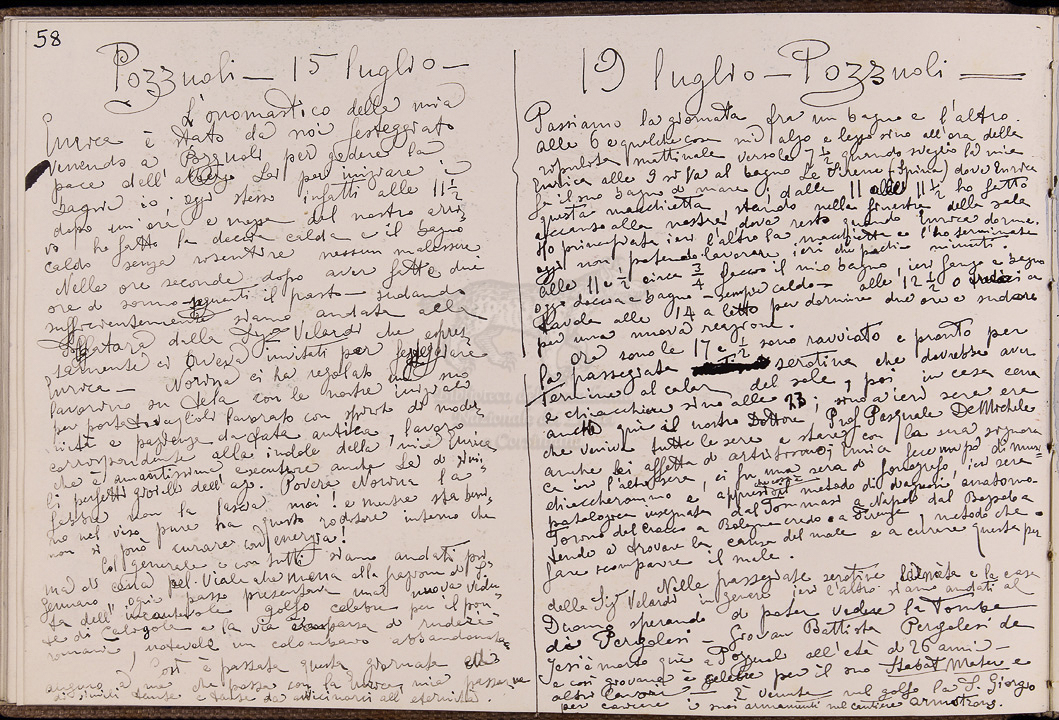 58
Pozzuoli — 15 luglio —
L'onomastico della mia
Enrica è stato da noi festeggiato
venendo a Pozzuoli per godere la
pace dell' Lei per iniziare i
bagni io: oggi stesso infatti alle 11 1/2
dopo un ora e mezza del nostro arri-
vo ho fatto la doccia calda e il bagno
caldo senza risentire nessun malessere
Nelle ore seconde dopo aver fatto due
ore di sonno seguenti il pasto sudando
sufficientemente siamo andati alla
Solfatara della Sig Velardi che espres
samente ci aveva invitati per festeggiare
Enrica — Norina ci ha regalato un suo
lavorino su tela con le nostre iniziali
per porta tovaglioli lavorato con spirito di mode-
stia e pazienza da fata antica, lavoro
corrispondente alla indole della mia Enrica
che è amantissima esecutrice anche Lei di simi-
li perfetti gioielli dell'ago. Povera Norina la
non la lascia mai! e mentre sta beni-
no nel viso pure ha questo roditore interno che
non si può curare con energia!
Col generale e con tutti siamo andati pri-
ma di cena pel Viale che mena alla frazione di S.
Gennaro. Ogni passo presentava una nuova vedu-
ta dell'incantevole golfo celebre per il pon-
te di Caligola e la via sparsa di ruderi
romani, notevole un colombario abbandonato
Così è passata questa giornata
anguro a me che passa con la Enrica mia per
19 luglio — Pozzuoli —
Passiamo la giornata fra un bagno e l'altro.
alle 6 e qualche cosa mi alzo e leggo sino all'ora della
ripulita mattinale verso le 7 1/2 quando sveglio la mia
Enrica alle 9 si va al bagno Le Sirene (Spina) dove Enrica
fa il suo bagno di mare; dalle 11 alle 11 1/2 ho fatto
questa macchietta, stando nella finestra della sala
accanto alla nostra, dove resto quando Enrica dorme.
Ho principiata ieri l'altro la macchietta e l'ho terminata
oggi non potendo lavorare ieri che pochi minuti.
alle 11 e 1/2 circa 3/4 faccio il mio bagno, ieri fango e bagno
oggi doccia e bagno — sempre caldo — alle 12 1/2 o a
tavola alle 14 a letto per dormire due ore e sudare
per una nuova reazione.
Ora sono le 17 e 1/2 sono ravviato e pronto per
la passegiata serotina che dovrebbe aver
termine al calar del sole, poi in casa cena
e chiacchiere sino alle 23; sino a ieri sera era
anche qui il nostro Dottore Prof Pasquale De Michele
che veniva tutte le sere a stare con la sua signora
anche lei affetta di artitismo; Enrica fece un po' di musi-
ca ieri l'altra sera, ci fu una sera di fonografo, ieri sera
chiaccherammo e appresi il nuovo metodo di diagnosi anatomo-
patologica insegnata dal Tommasi a Napoli dal Bozzolo a
Torino del Cracco a Bologna credo o a Firenze, metodo che
tende a trovare la causa del male e a curare questa per
fare scomparire il male.
Nelle passegiate serotine la casa
della Sig Velardi in genere ieri l'altro siamo andati al
Duomo sperando di poter vedere la Tomba
di Pergolesi — Giovan Battista Pergolesi da
Jesi è morto qui a Pozzuoli all'età di 26 anni —
e così giovane è celebre per il suo Stabat Mater e
altri lavori — È venuta nel golfo la S. Giorgio
per caricare i suoi armamenti nel cantiere Armstrong.